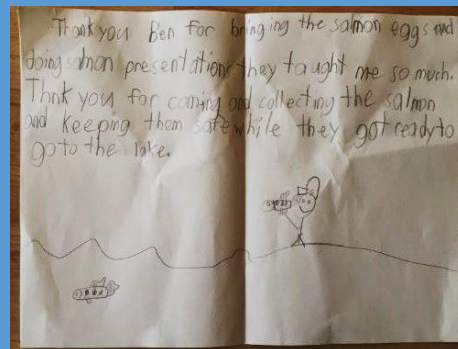 Thankyou Ben for bringing the salmon eggs and
doing salmon presentations they taught me so much.
Thnk you for coming and collecting the salmon
and keeping them safe while they got ready to
go to the lake.